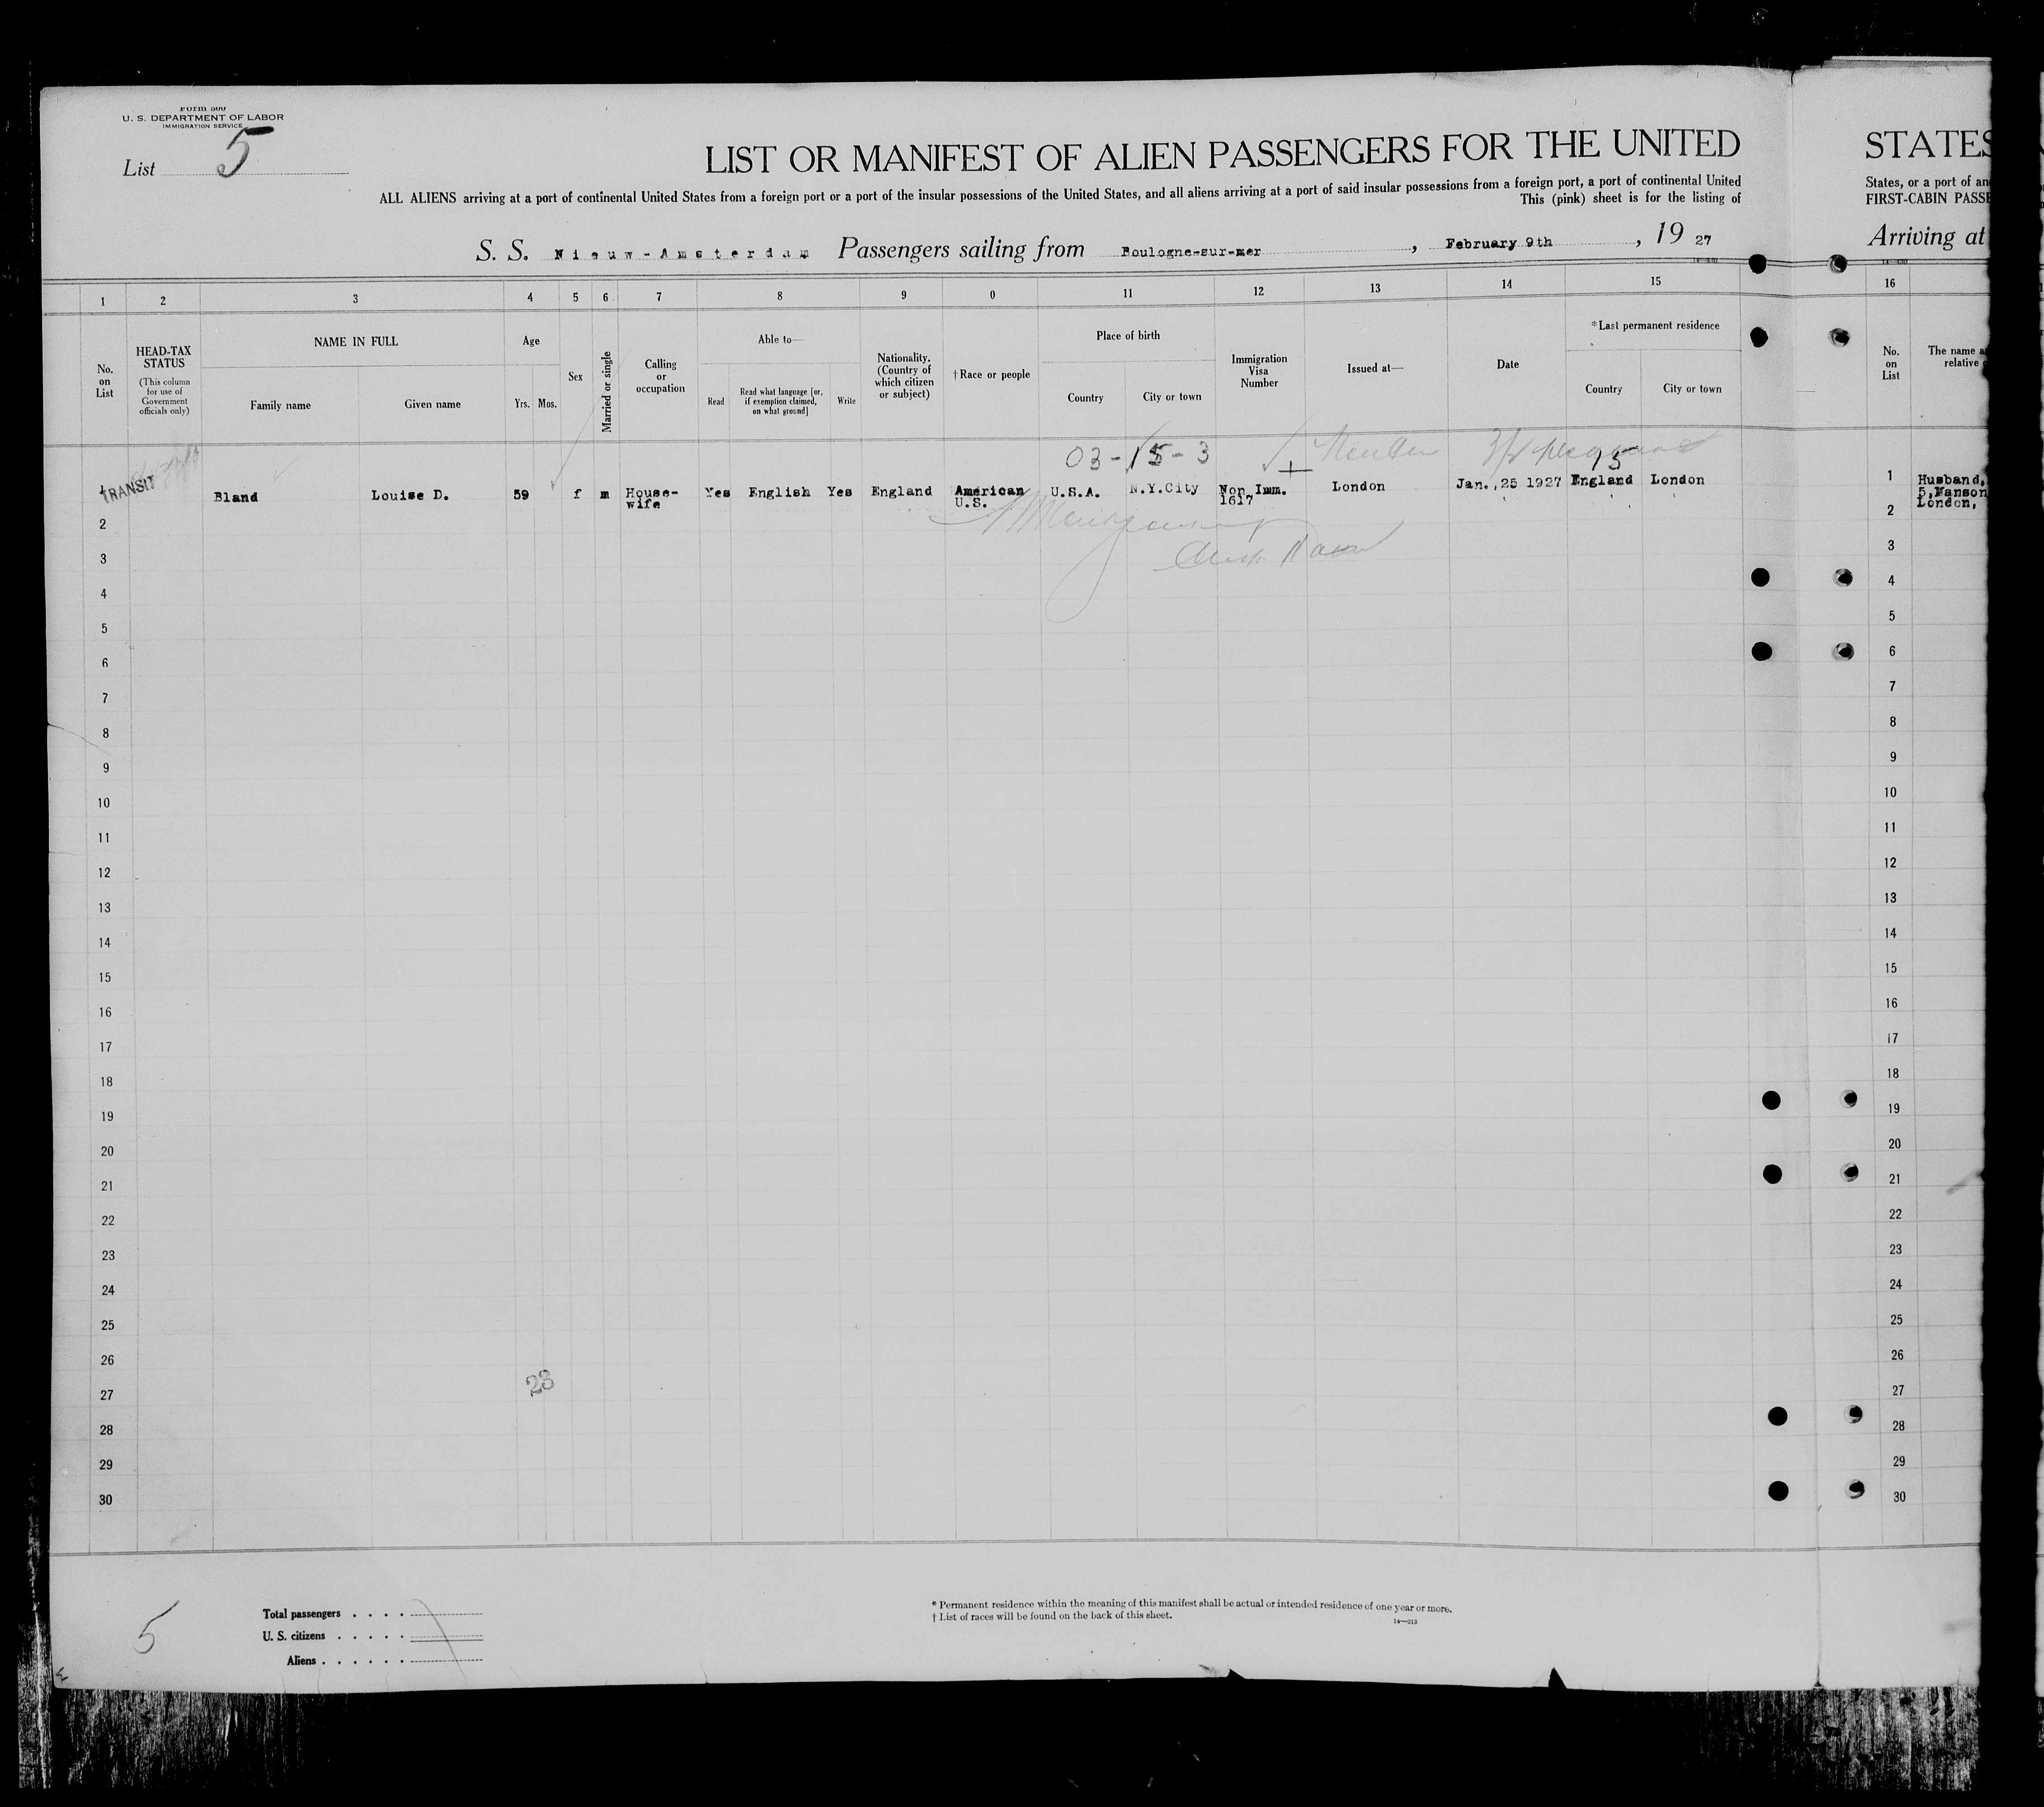 Form 500
U. S. DEPARTMENT OF LABOR
IMMIGRATION SERVICE
List 5
LIST OR MANIFEST OF ALIEN PASSENGERS FOR THE UNITED
ALL ALIENS arriving at a port of continental United States from a foreign port or a port of the insular possessions of the United States, and all aliens arriving at a port of said insular possessions from a foreign port, a port of continental United
This (pink) sheet is for the listing of
S. S. Nieuw-Amsterdam Passengers sailing from Boulogne-sur-mer, February 9th, 19 27
STATES
States, or a port of an
FIRST-CABIN PASSE
Arriving at
1 2 3 4 5 6 7 8 9 0 11 12 13 14 15 16
No. on List
HEAD-TAX STATUS
(This column for use of Government officials only)
NAME IN FULL
Family name
Given name
Age
Yrs. Mos.
Sex
Married or single
Calling or occupation
Able to—
Read
Read what language [or, if exemption claimed, on what ground]
Write
Nationality. (Country of which citizen or subject)
†Race or people
Place of birth
Country
City or town
Immigration Visa Number
Issued at—
Date
*Last permanent residence
Country
City or town
No. on List
The name a
relative
03-15-3
15
1 TRANSIT Bland Louise D. 59 f m House-wife Yes English Yes England American U.S. U.S.A. N.Y.City Non Imm. 1617 London Jan.,25 1927 England London
1 Husband,
5,Manson
London,
2 2
3 3
4 4
5 5
6 6
7 7
8 8
9 9
10 10
11 11
12 12
13 13
14 14
15 15
16 16
17 17
18 18
19 19
20 20
21 21
22 22
23 23
24 24
25 25
26 26
23
27 27
28 28
29 29
30 30
5
Total passengers . . . .
U. S. citizens . . . . .
Aliens . . . . . .
* Permanent residence within the meaning of this manifest shall be actual or intended residence of one year or more.
† List of races will be found on the back of this sheet.
14—213